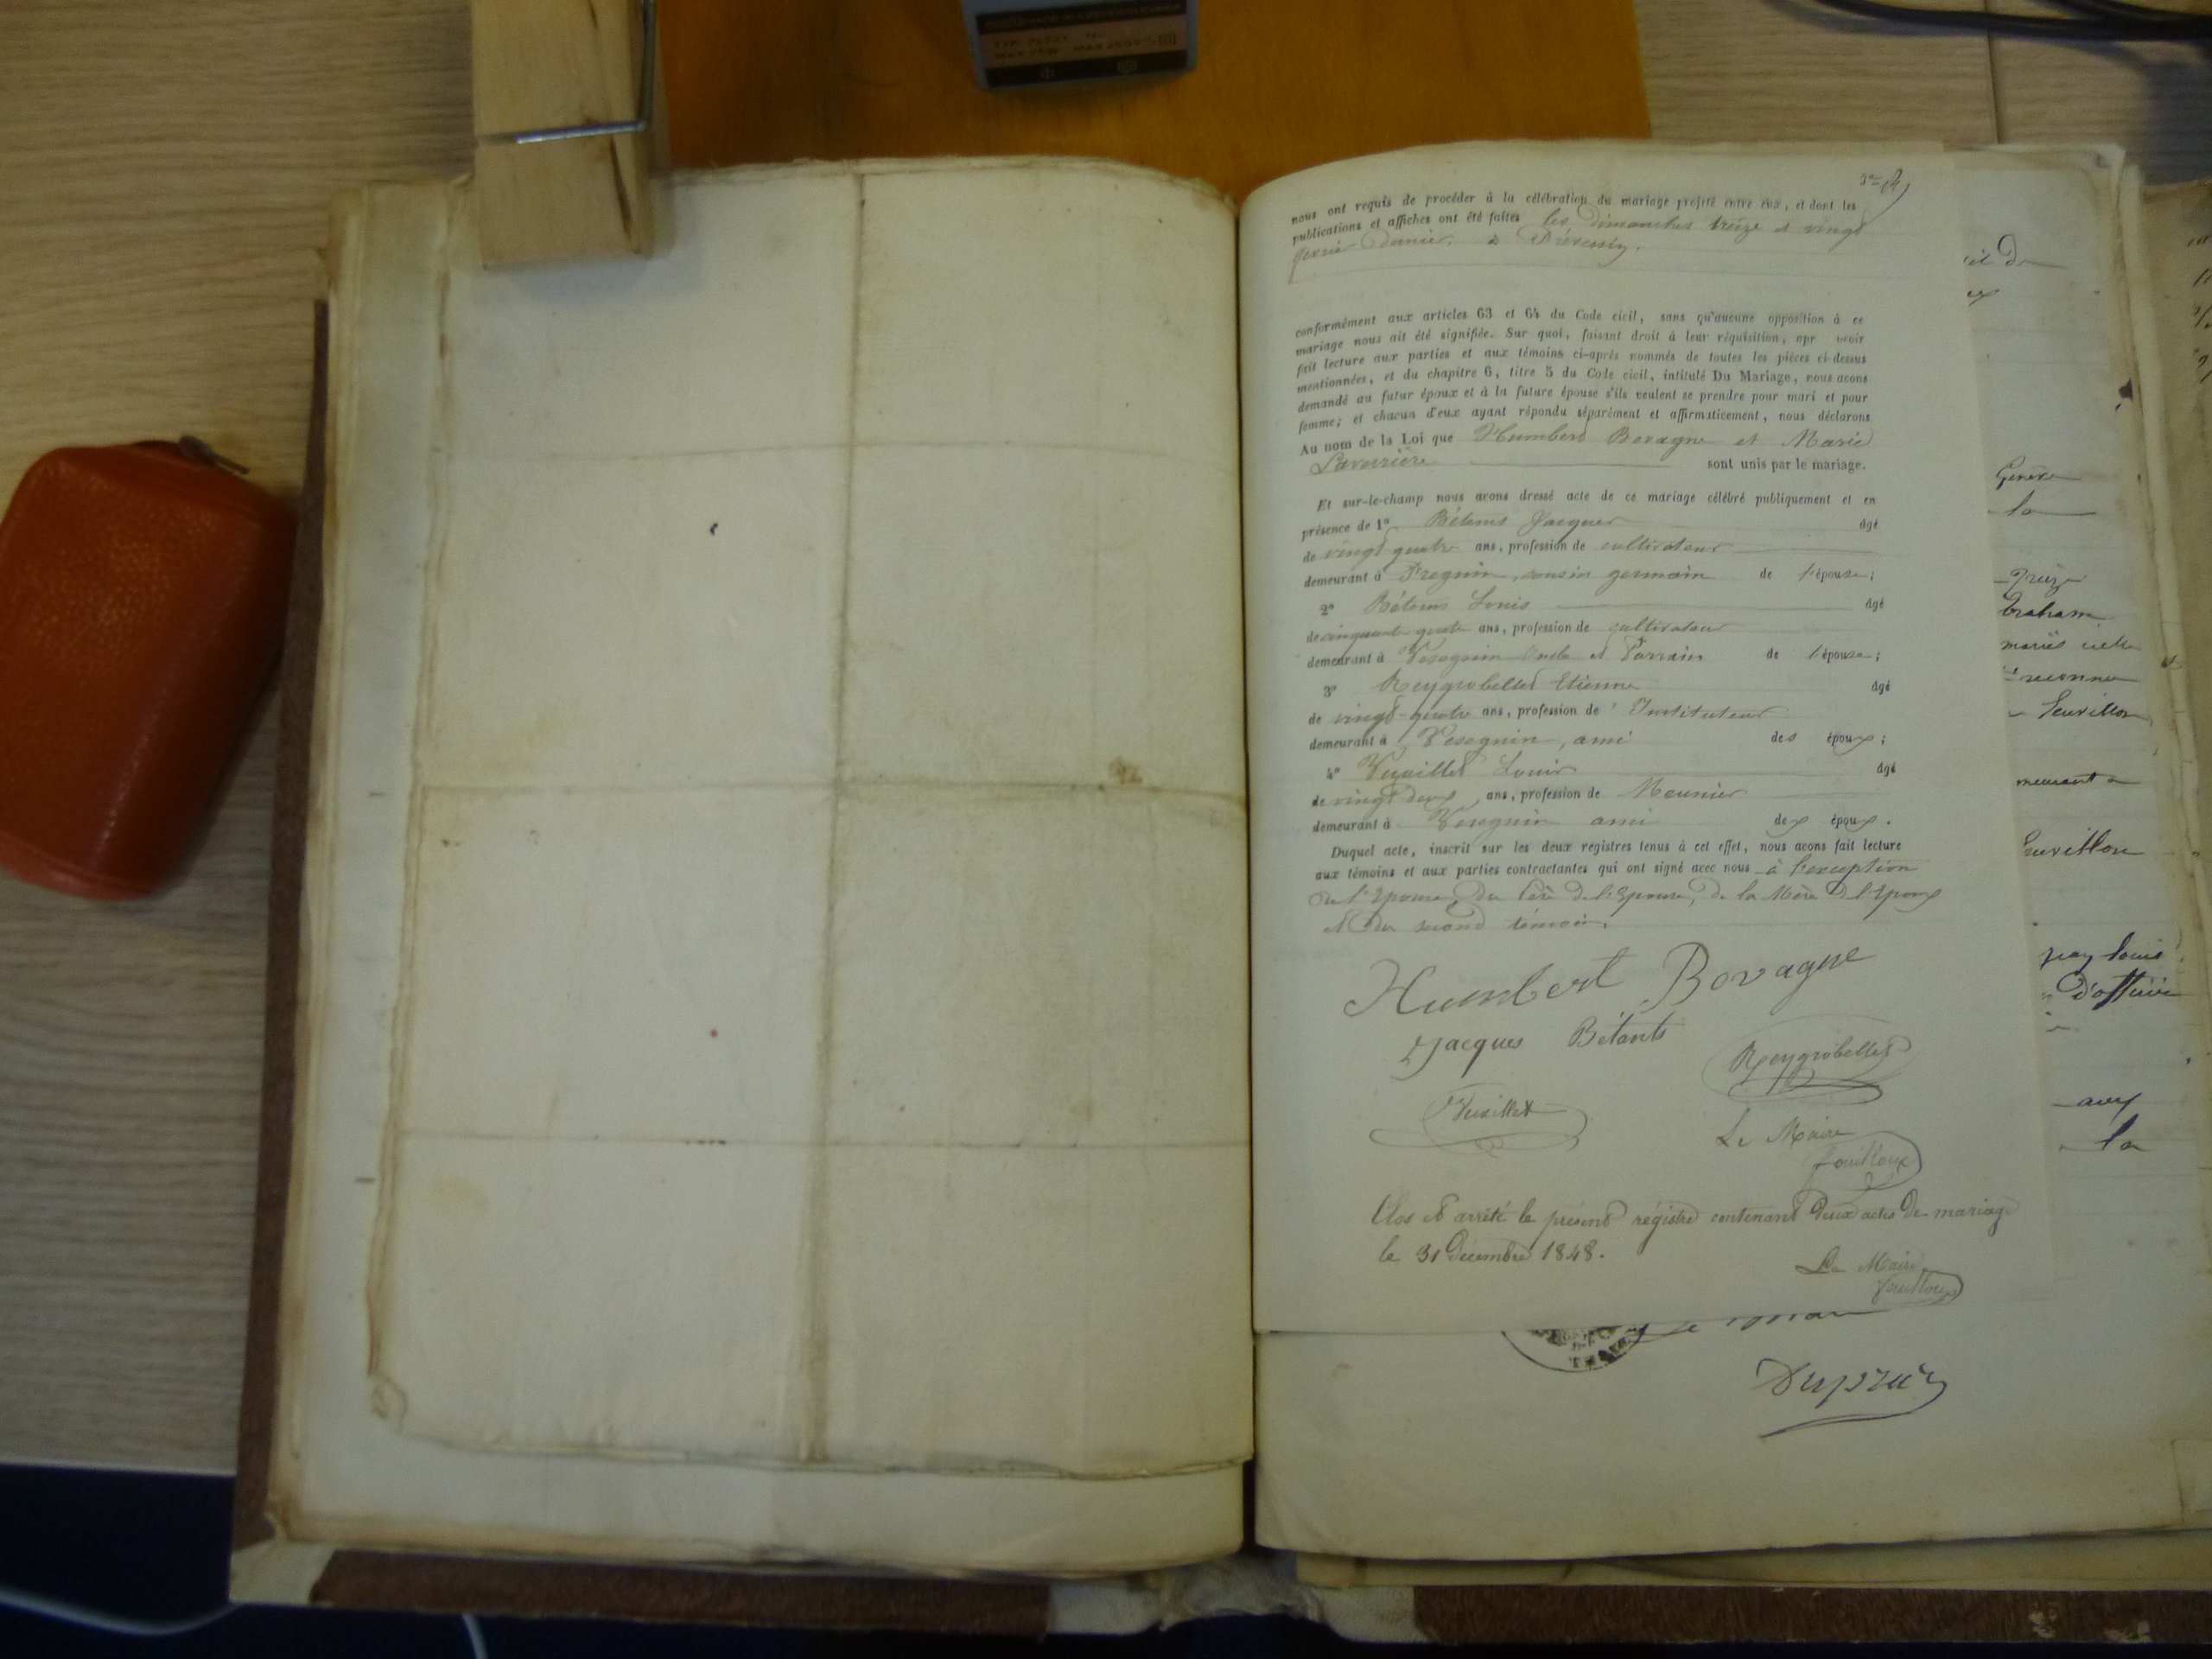 3me
nous ont requis de procéder à la célébration du mariage projeté entre eux, et dont les
publications et affiches ont été faites les dimanches treize et vingt
dernier à Prévessin.
conformément aux articles 63 et 64 du Code civil, sans qu'aucune opposition à ce
mariage nous ait été signifiée. Sur quoi, faisant droit à leur réquisition, apr avoir
fait lecture aux parties et aux témoins ci-après nommés de toutes les pièces ci-dessus
mentionnées, et du chapitre 6, titre 5 du Code civil, intitulé Du Mariage, nous avons
demandé au futur époux et à la future épouse s'ils veulent se prendre pour mari et pour
femme; et chacun d'eux ayant répondu séparément et affirmativement, nous déclarons
Au nom de la Loi que Humbert Bovagne et Marie
Laverrière sont unis par le mariage.
Et sur-le-champ nous avons dressé acte de ce mariage célébré publiquement et en
présence de 1° Bétems Jacques âgé
de vingt quatre ans, profession de cultivateur
demeurant à Pregnin, cousin germain de l'épouse;
2° Bétems Louis âgé
de cinquante quatre ans, profession de cultivateur
demeurant à Vesegnin oncle et Parrain de l'épouse;
3° Reygrobellet Etienne âgé
de vingt-quatre ans, profession de Instituteur
demeurant à Vesegnin, ami des époux;
4° Vuaillet Louis âgé
de vingt deux ans, profession de Meunier
demeurant à Vesegnin ami des époux.
Duquel acte, inscrit sur les deux registres tenus à cet effet, nous avons fait lecture
aux témoins et aux parties contractantes qui ont signé avec nous à l'exception
de l'Epouse, du Père de l'Epouse, de la Mère de l'Epoux
et du second témoin.
Humbert Bovagne
Jacques Bétants
Reygrobellet
Vuaillet
Le Maire
Fouilloux
Clos et arrêté le présent régistre contenant deux actes de mariage
le 31 Décembre 1848.
Le Maire
Fouilloux
Genève
la
braham
mariés
meurant à
pay louis
avey
la